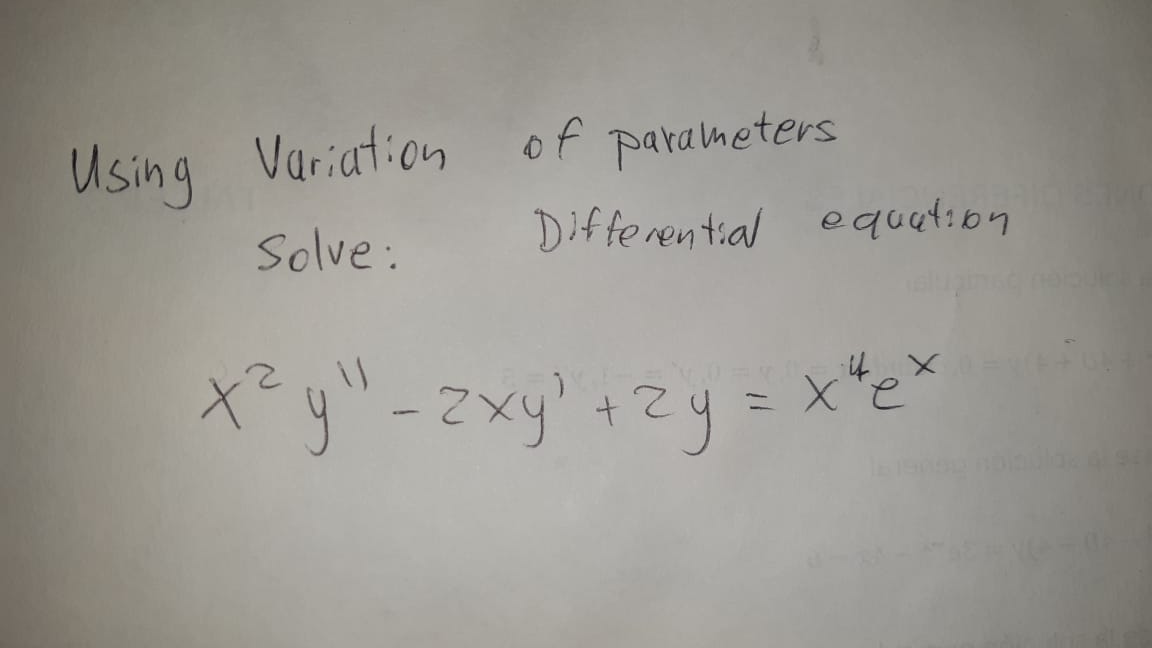 Using Variation of parameters
Solve: Differential equation
x² y'' - 2xy' + 2y = x⁴eˣ